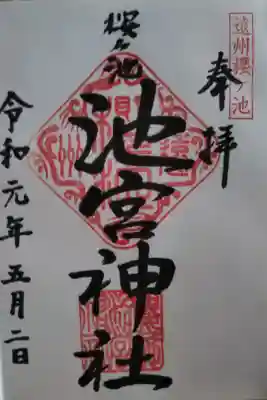 遠州櫻ヶ池
奉拝
桜ヶ池
池宮神社
令和元年五月二日